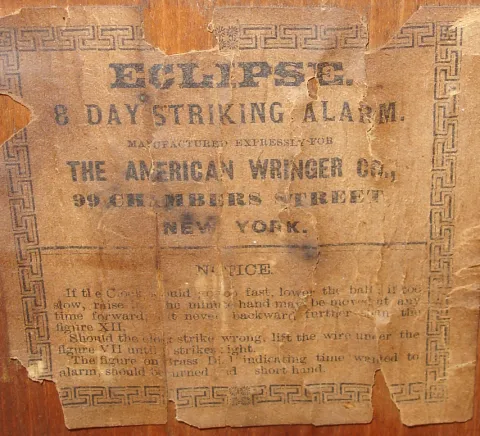 ECLIPSE.
8 DAY STRIKING ALARM.
MANUFACTURED EXPRESSLY FOR
THE AMERICAN WRINGER CO.,
99 CHAMBERS STREET
NEW YORK.
NOTICE.
If the Clock should go too fast, lower the ball; if too
slow, raise the minute hand may be moved at any
time forward; it never backward further than the
figure XII.
Should the clock strike wrong, lift the wire under the
figure VII until strikes right.
The figure on Brass Dial indicating time wanted to
alarm, should be turned short hand.